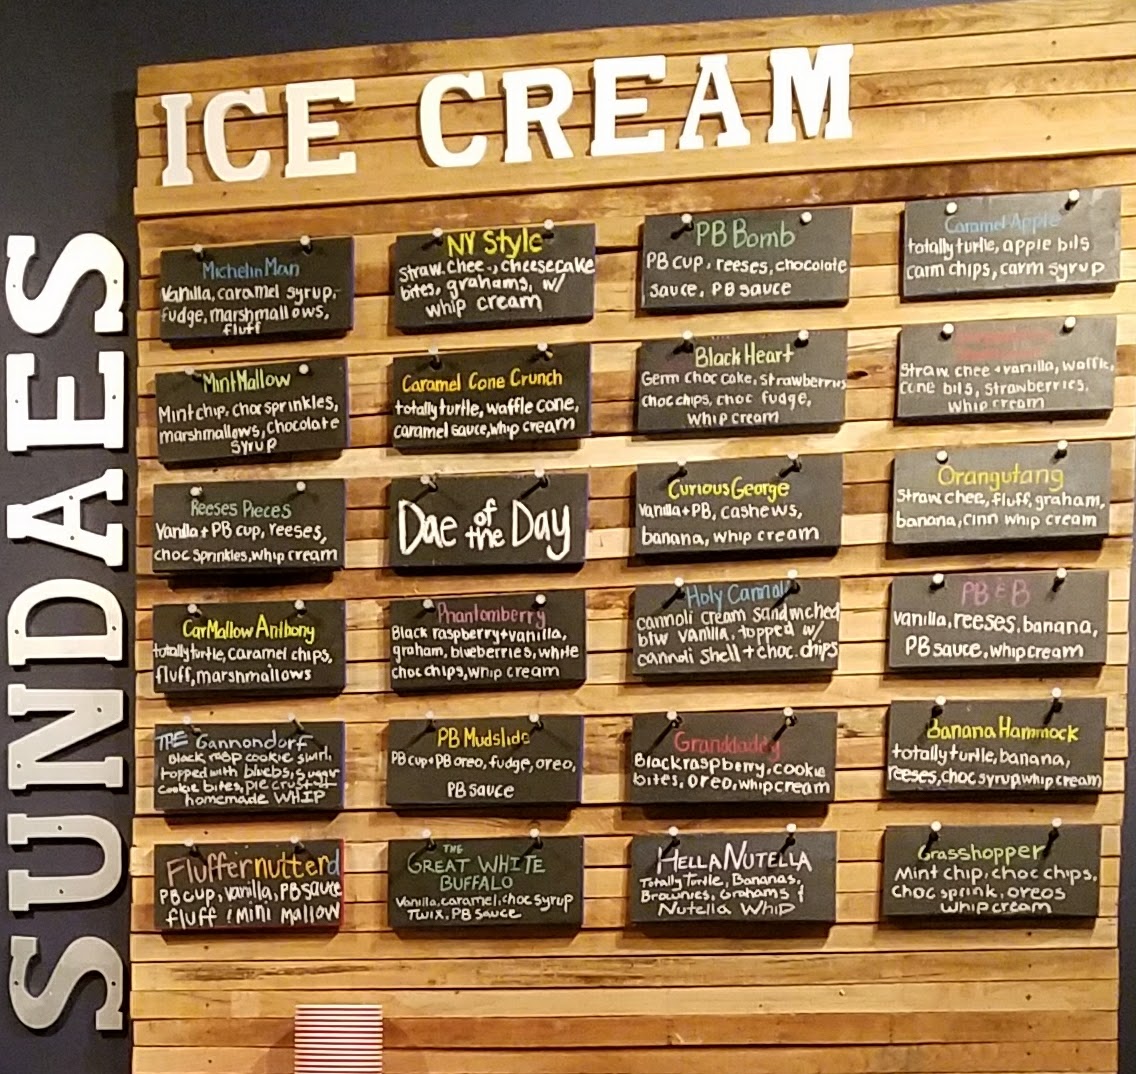 ICE CREAM
SUNDAES
Michelin Man
Vanilla, caramel syrup,
fudge, marshmallows,
fluff
NY Style
straw. chee., cheesecake
bites, grahams, w/
whip cream
PB Bomb
PB cup, reeses, chocolate
sauce, PB sauce
Caramel Apple
totally turtle, apple bits
carm chips, carm syrup
Mint Mallow
Mint chip, choc sprinkles,
marshmallows, chocolate
syrup
Caramel Cone Crunch
totally turtle, waffle cone,
caramel sauce, whip cream
Black Heart
Germ choc cake, strawberries
choc chips, choc fudge,
whip cream
Straw chee + vanilla, waffle,
cone bits, strawberries,
whip cream
Reeses Pieces
Vanilla + PB cup, reeses,
choc sprinkles, whip cream
Dae of the Day
Curious George
Vanilla + PB, cashews,
banana, whip cream
Orangutang
Straw chee, fluff, graham,
banana, cinn whip cream
CarMallow Anthony
totally turtle, caramel chips,
fluff, marshmallows
Phantomberry
Black raspberry + vanilla,
graham, blueberries, white
choc chips, whip cream
Holy Cannoli
cannoli cream sandwiched
btw vanilla, topped w/
cannoli shell + choc. chips
PB & B
vanilla, reeses, banana,
PB sauce, whip cream
THE Gannondorf
Black rasp cookie swirl,
topped with bluebs, sugar
cookie bites, pie crust +
homemade WHIP
PB Mudslide
PB cup + PB oreo, fudge, oreo,
PB sauce
Granddaddy
Black raspberry, cookie
bites, oreo, whip cream
Banana Hammock
totally turtle, banana,
reeses, choc syrup whip cream
Fluffernutterd
PB cup, vanilla, PB sauce
fluff ! Mini Mallow
THE
GREAT WHITE
BUFFALO
Vanilla, caramel, choc syrup
Twix, PB Sauce
HELLA NUTELLA
Totally Turtle, Bananas,
Brownies, Grahams &
Nutella Whip
Grasshopper
Mint chip, choc chips,
choc sprink, oreos
whip cream